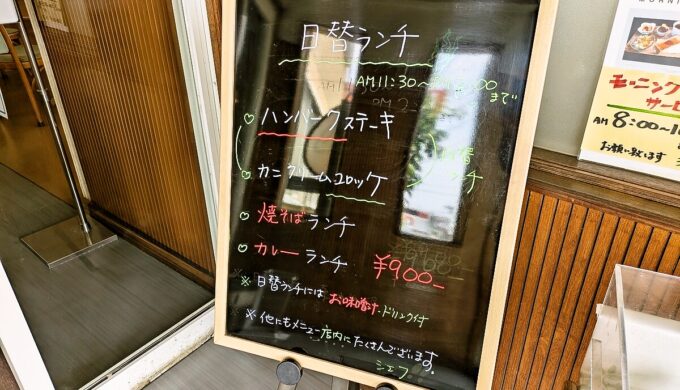 日替ランチ
AM11:30～PM2:00
まで
♡ ハンバーグステーキ
♡ カニクリームコロッケ
日替
ランチ
♡ 焼そばランチ
♡ カレーランチ ¥900-
※日替ランチには お味噌汁・ドリンク付
※他にもメニュー店内にたくさんございます。
シェフ
モーニング
サービ
AM 8:00～1
お願い致します